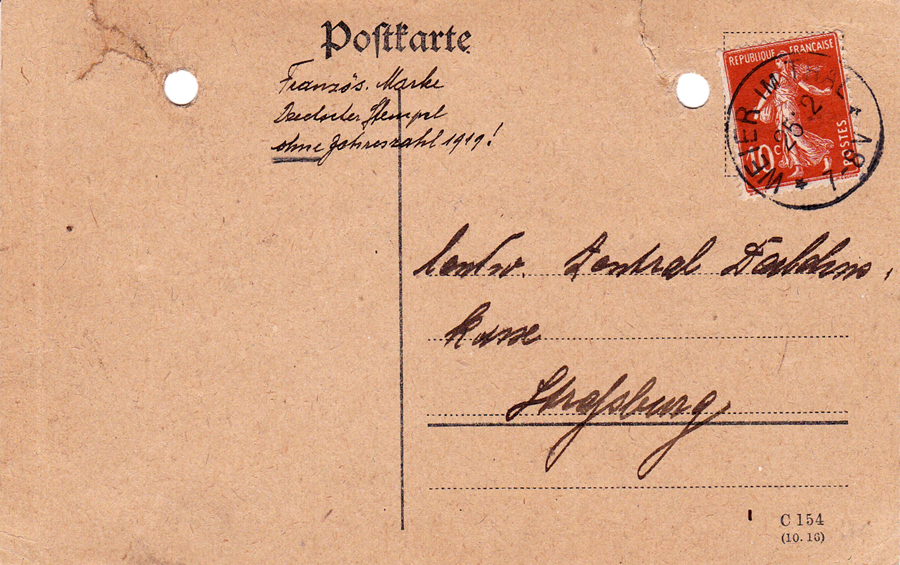 Postkarte
Französ. Marke
Deutscher Stempel
ohne Jahreszahl 1919!
REPUBLIQUE FRANÇAISE
10 c
POSTES
WEIER IM THAL
26. 2
7-8 V
landw. Zentral Darlehns,
kasse
Strassburg,
C 154
(10. 16)